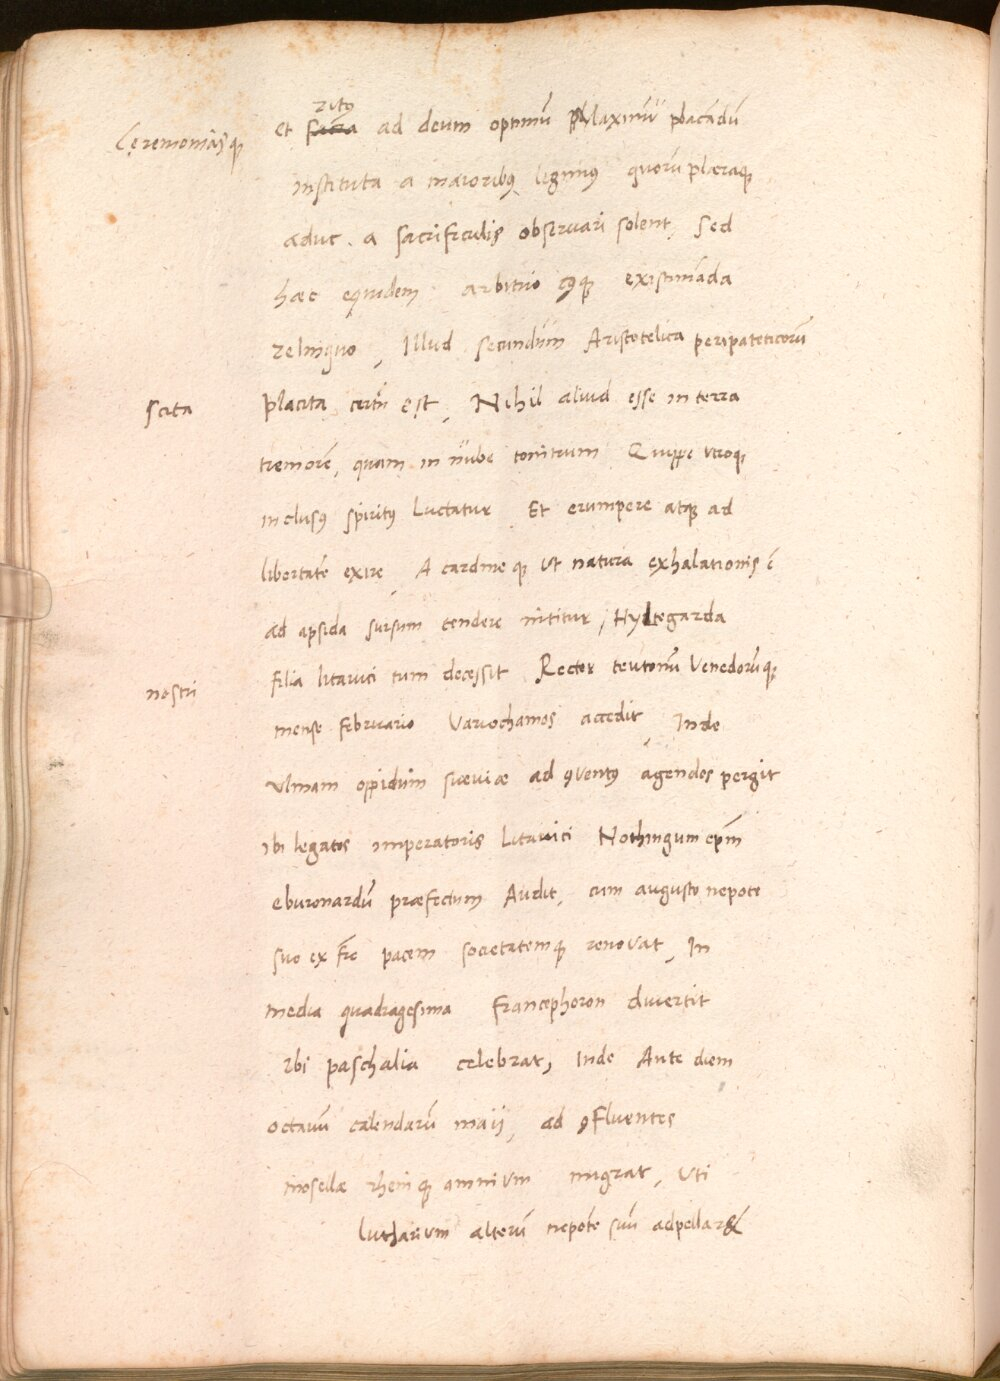 ritꝰ
Cęremoniasꝗ
et sacra ad deum optimū Maximū placādū
instituta a maioribꝰ legimus quorū plæraqꝫ
aduc a sacrificulis obseruari solent, Sed
hæc equidem arbitrio cuiꝰꝗ existimāda
relinquo, Illud secundum Aristotelica peripateticorū
scita
placita certū est, Nihil aliud esse in terra
tremorē, quam in nube tonitrum Quippe utroqꝫ
inclusꝰ spiritꝰ Luctatur Et erumpere atqꝫ ad
libertatē exire, A cardineqꝫ ut natura exhalationis ē
ad apsida sursum tendere nititur, Hyltegarda
filia litauici tum decessit Rector teutonū Venedorūqꝫ
nostri
mense februario Variochamos accedit, Inde
Ulmam oppidum sueuiæ ad ꝯventꝰ agendos pergit
ibi legatos imperatoris Litauici Nothingum ep̄m
eburonardū præfectum Audit, cum augusto nepote
suo ex fr̄e pacem societatemqꝫ renovat, In
media quadragesima francephoron divertit
Ibi paschalia celebrat, Inde Ante diem
octauū calendarū maij, ad ꝯfluentes
mosellæ rheniqꝫ amnium migrat, Uti
lutharium alterū nepotē suū adpellar&